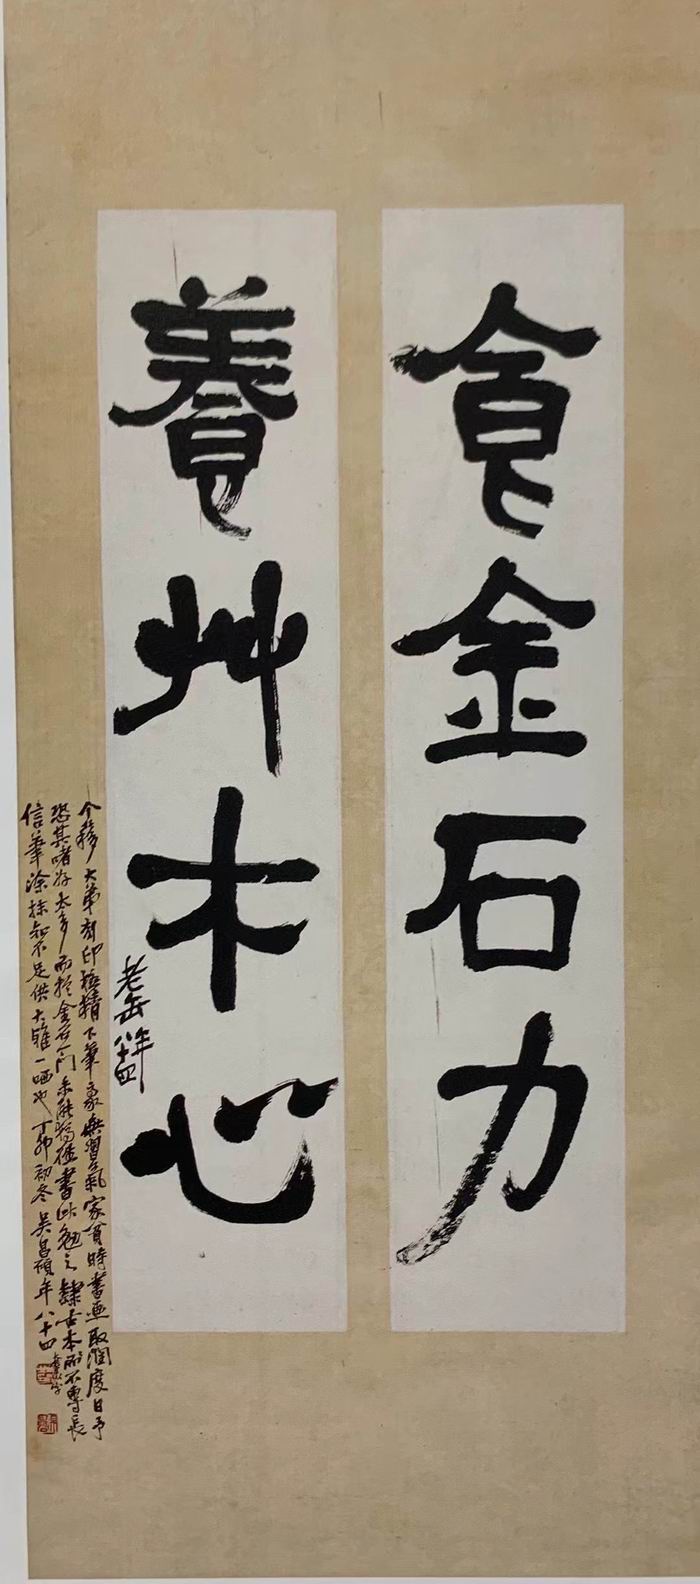 食金石力
養艸木心
老缶年八十四
个簃大弟刻印極精下筆豪無習氣家貧時書画取潤度日予
恐其嗜好太多而於金石门未能為值書此勉之隸古本所不專長
信筆涂抹知不足供大雅一哂也丁卯初冬吳昌碩年八十四